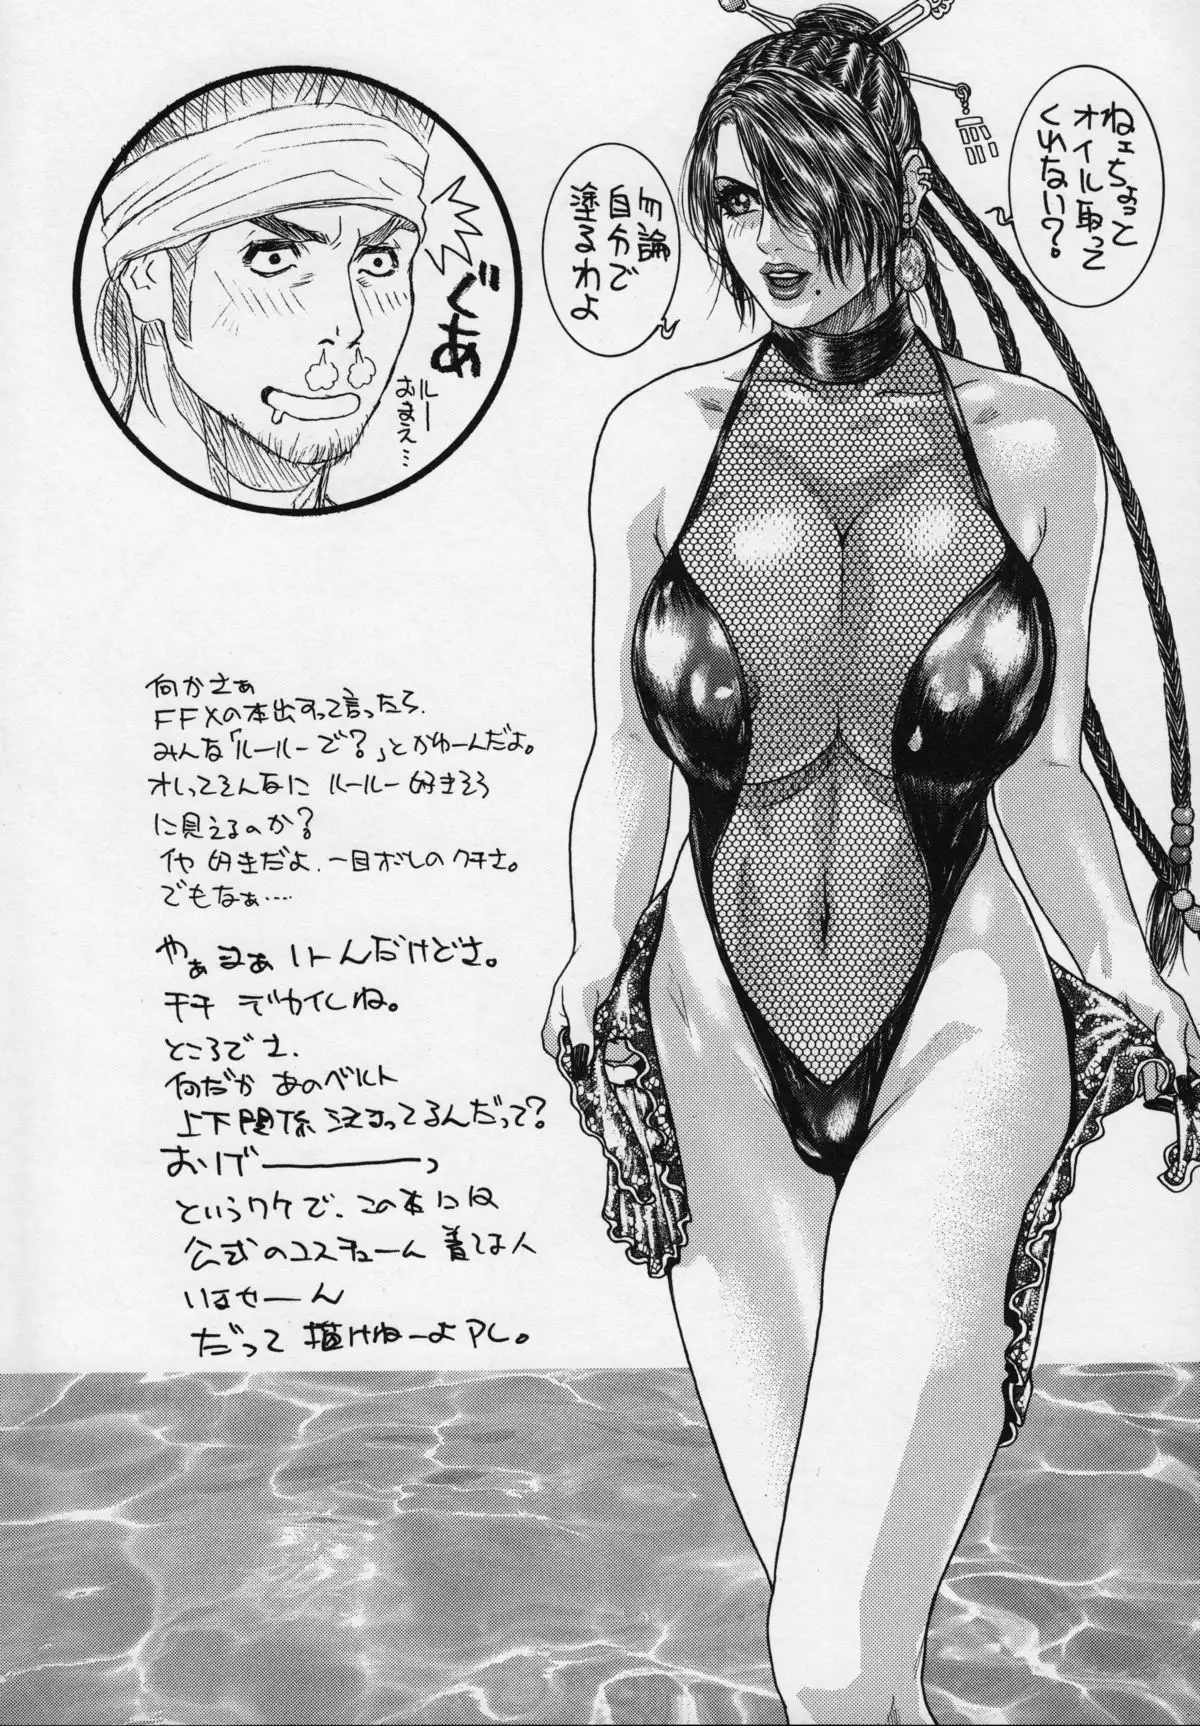 ねェちょっと
オイル取って
くれない?
勿論
自分で
塗るわよ
ぐあ
ルー
おまえ…
何かさぁ
FFXの本出すって言ったら、
みんな「ルールーで?」とかゆーんだよ。
オレってそんなに ルールー好きそう
に見えるのか?
イヤ 好きだよ、一目ボレのクチさ。
でもなぁ……
やぁまぁ いーんだけどさ。
チチ デカイしね。
ところでさ、
何だか あのベルト
上下関係 決まってるんだって?
おりげーーーっ
というワケで、この本には
公式のコスチューム 着てる人
いませーん
だって 描けねーよアレ。